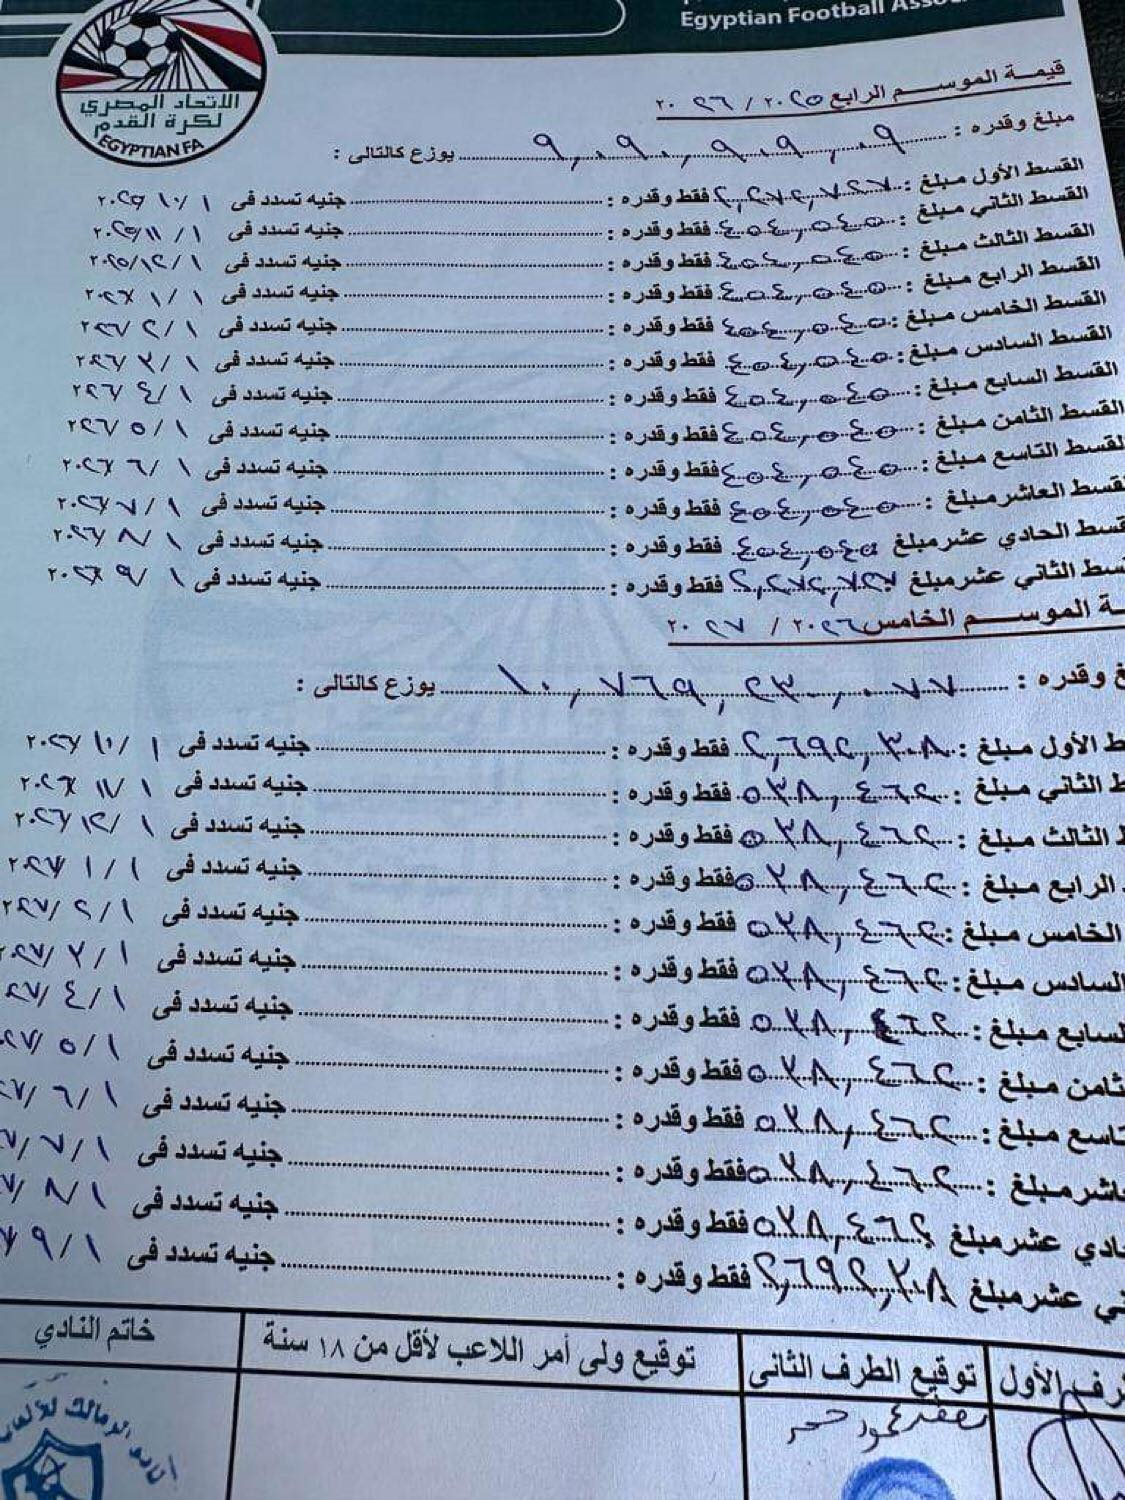 Egyptian Football Assoc
الاتحاد المصري
لكرة القدم
EGYPTIAN FA
قيمة الموسم الرابع ٢٠٢٥ / ٢٠٢٦
مبلغ وقدره : ٩,٠٩٠,٩٠٩,٠٩ يوزع كالتالى :
القسط الأول مبلغ : ٢,٢٧٢,٧٢٧ فقط وقدره : جنيه تسدد فى ١ / ١٠ / ٢٠٢٥
القسط الثاني مبلغ : ٤٥٤,٥٤٥ فقط وقدره : جنيه تسدد فى ١ / ١١ / ٢٠٢٥
القسط الثالث مبلغ : ٤٥٤,٥٤٥ فقط وقدره : جنيه تسدد فى ١ / ١٢ / ٢٠٢٥
القسط الرابع مبلغ : ٤٥٤,٥٤٥ فقط وقدره : جنيه تسدد فى ١ / ١ / ٢٠٢٦
القسط الخامس مبلغ : ٤٥٤,٥٤٥ فقط وقدره : جنيه تسدد فى ١ / ٢ / ٢٠٢٦
القسط السادس مبلغ : ٤٥٤,٥٤٥ فقط وقدره : جنيه تسدد فى ١ / ٣ / ٢٠٢٦
القسط السابع مبلغ : ٤٥٤,٥٤٥ فقط وقدره : جنيه تسدد فى ١ / ٤ / ٢٠٢٦
القسط الثامن مبلغ : ٤٥٤,٥٤٥ فقط وقدره : جنيه تسدد فى ١ / ٥ / ٢٠٢٦
القسط التاسع مبلغ : ٤٥٤,٥٤٥ فقط وقدره : جنيه تسدد فى ١ / ٦ / ٢٠٢٦
لقسط العاشر مبلغ : ٤٥٤,٥٤٥ فقط وقدره : جنيه تسدد فى ١ / ٧ / ٢٠٢٦
قسط الحادي عشر مبلغ ٤٥٤,٥٤٥ فقط وقدره : جنيه تسدد فى ١ / ٨ / ٢٠٢٦
سط الثاني عشر مبلغ ٢,٢٧٢,٧٢٧ فقط وقدره : جنيه تسدد فى ١ / ٩ / ٢٠٢٦
ـة الموسم الخامس ٢٠٢٦ / ٢٠٢٧
غ وقدره : ١٠,٧٦٩,٢٣٠,٠٧٧ يوزع كالتالى :
ط الأول مبلغ : ٢,٦٩٢,٣٠٨ فقط وقدره : جنيه تسدد فى ١ / ١٠ / ٢٠٢٦
ط الثاني مبلغ : ٥٣٨,٤٦٢ فقط وقدره : جنيه تسدد فى ١ / ١١ / ٢٠٢٦
ط الثالث مبلغ : ٥٣٨,٤٦٢ فقط وقدره : جنيه تسدد فى ١ / ١٢ / ٢٠٢٦
الرابع مبلغ : ٥٣٨,٤٦٢ فقط وقدره : جنيه تسدد فى ١ / ١ / ٢٠٢٧
الخامس مبلغ : ٥٣٨,٤٦٢ فقط وقدره : جنيه تسدد فى ١ / ٢ / ٢٠٢٧
السادس مبلغ : ٥٣٨,٤٦٢ فقط وقدره : جنيه تسدد فى ١ / ٣ / ٠٢٧
لسابع مبلغ : ٥٣٨,٤٦٢ فقط وقدره : جنيه تسدد فى ١ / ٤ / ٠٢٧
ثامن مبلغ : ٥٣٨,٤٦٢ فقط وقدره : جنيه تسدد فى ١ / ٥ / ٠٢٧
تاسع مبلغ : ٥٣٨,٤٦٢ فقط وقدره : جنيه تسدد فى ١ / ٦ / ٢٧
اشر مبلغ : ٥٣٨,٤٦٢ فقط وقدره : جنيه تسدد فى ١ / ٧ / ٧
ادي عشر مبلغ ٥٣٨,٤٦٢ فقط وقدره : جنيه تسدد فى ١ / ٨ / ٧
ني عشر مبلغ ٢,٦٩٢,٣٠٨ فقط وقدره : جنيه تسدد فى ١ / ٩ / ٧
رف الأول توقيع الطرف الثانى توقيع ولى أمر اللاعب لأقل من ١٨ سنة خاتم النادي
محمود
نادي الزمالك للألعاب